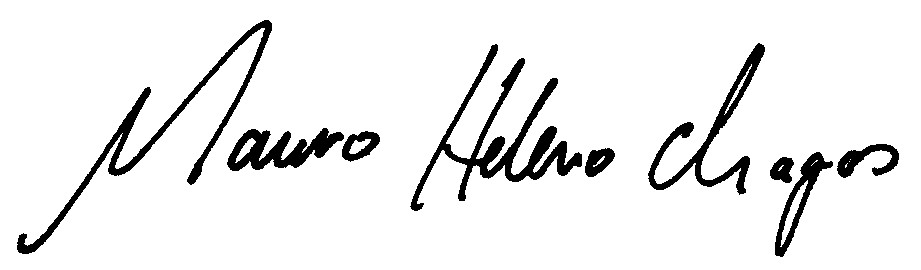 Mauro Heleno Chagas